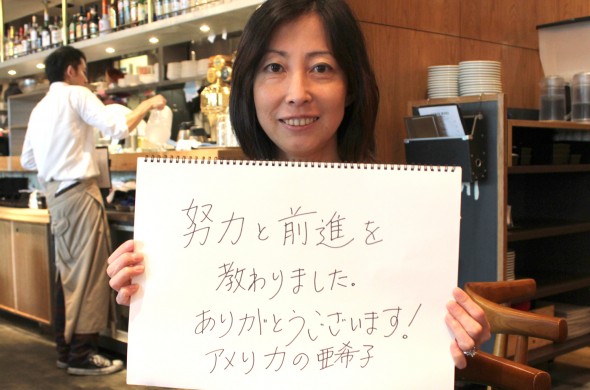 努力と前進を
教わりました。
ありがとうございます!
アメリカの亜希子